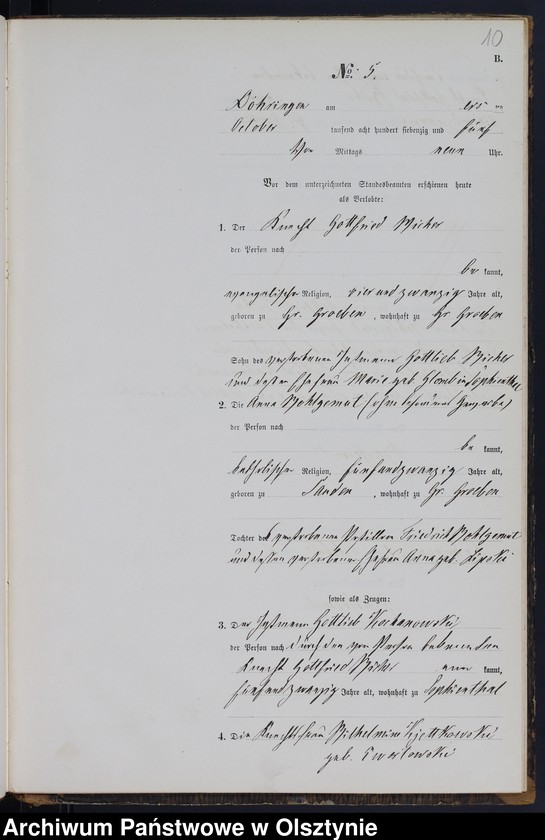 10
B.
No. 5.
Döhringen am ers ten
October tausend acht hundert siebenzig und fünf
Vor Mittags neun Uhr.
Vor dem unterzeichneten Standesbeamten erschienen heute
als Verlobte:
1. Der Knecht Gottfried
der Person nach
be kannt,
evangelischer Religion, vier und zwanzig Jahre alt,
geboren zu Gr. Groeben, wohnhaft zu Gr. Groeben
Sohn des verstorbenen Instmann Gottlieb
und dessen Ehefrau Marie geb. in Sophienthal
2. Die Anna Wohlgemut (ohne besonderes Gewerbe)
der Person nach
be kannt,
katholischer Religion, fünfundzwanzig Jahre alt,
geboren zu Tanden, wohnhaft zu Gr. Groeben
Tochter des verstorbenen Friedrich Wohlgemut
und dessen verstorbenen Ehefrau Anna geb. Lipski
sowie als Zeugen:
3. Der Instmann Gottlieb Kochanowski
der Person nach durch den von Person bekannten
Knecht Gottfried aner kannt,
fünfundzwanzig Jahre alt, wohnhaft zu Sophienthal
4. Die Knechtsfrau Wilhelmine
geb.
Archiwum Państwowe w Olsztynie